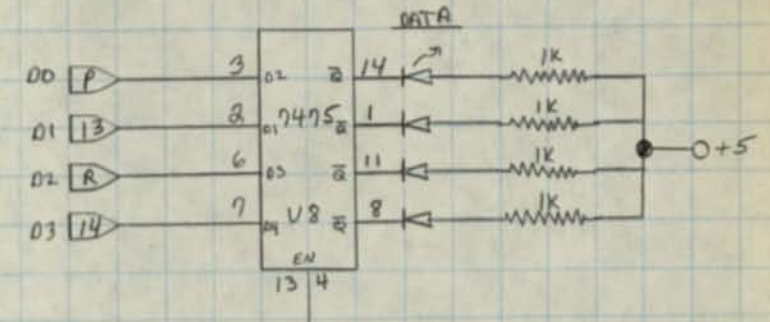 DATA
D0 P 3 D2 Q̅ 14 1K
D1 13 2 D1 7475 Q̅ 1 1K
+5
D2 R 6 D3 Q̅ 11 1K
D3 14 7 D4 U8 Q̅ 8 1K
EN
13 4